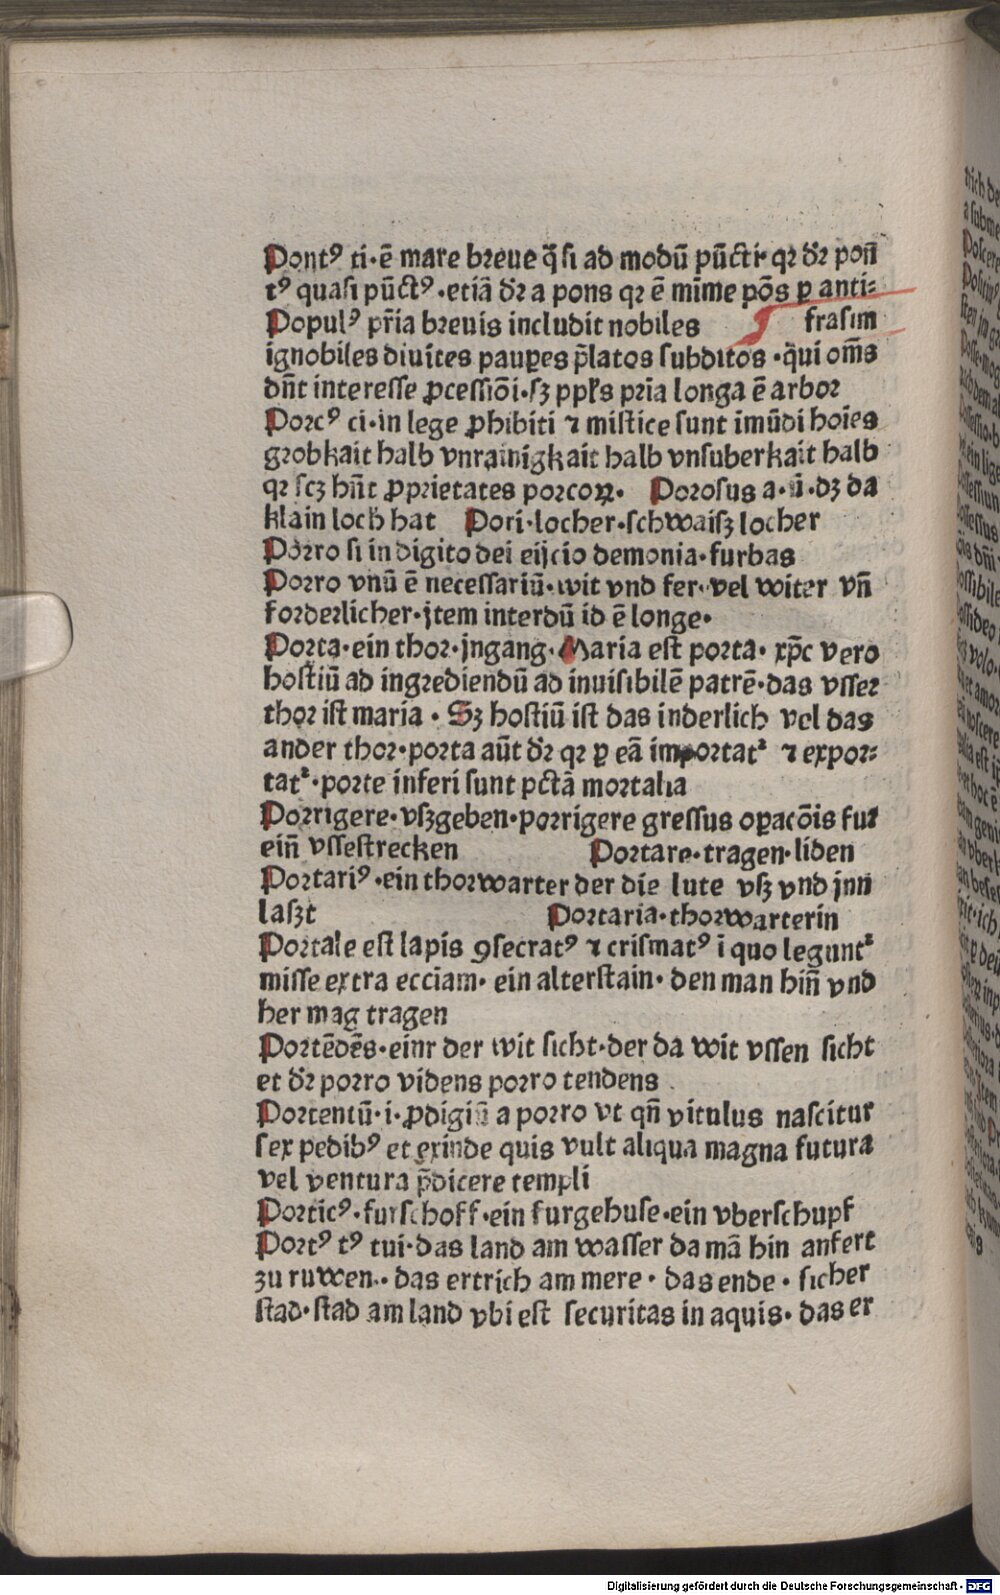 Pontꝰ ti·ē mare breue q̄ si ad modū pūcti· qꝛ dr̄ pon̄
tꝰ quasi pūctꝰ ·etiā dr̄ a pons qꝛ ē mīme pōs ꝑ anti⸗
Populꝰ pr̄ia breuis includit nobiles frasim
ignobiles diuites pauꝑes p̄latos subditos ·q̄ui om̄s
dn̄t interesse ꝓcessiōi·sꝫ ppl̄s pria longa ē arbor
Porcꝰ ci·in lege ꝓhibiti ⁊ mistice sunt imūdi hoīes
grobkait halb vnrainigkait halb vnsuberkait halb
qꝛ scꝫ hn̄t ꝓprietates porcoꝝ· Porosus a·ū·dꝫ da
klain loch hat Pori·locher·schwaisz locher
Porro si in digito dei eijcio demonia·furbas
Porro vnū ē necessariū·wit vnd fer·vel witer vn̄
forderlicher·jtem interdū id ē longe·
Porta·ein thor·jngang·Maria est porta· xp̄c vero
hostiū ad ingrediendū ad inuisibilē patrē·das vsser
thor ist maria · Sꝫ hostiū ist das inderlich vel das
ander thor·porta aūt dr̄ qꝛ ꝑ eā importat᷑ ⁊ expor⸗
tat᷑·porte inferi sunt pctā mortalia
Porrigere·vszgeben·porrigere gressus oꝑacōis fur
ein̄ vssestrecken Portare·tragen·liden
Portariꝰ ·ein thorwarter der die lute vsz vnd jnn
laszt Portaria·thorwarterin
Portale est lapis ꝯsecratꝰ ⁊ crismatꝰ ī quo legunt᷑
misse extra ecciam· ein alterstain· den man hin̄ vnd
her mag tragen
Portēdēs·einr der wit sicht·der da wit vssen sicht
et dr̄ porro videns porro tendens
Portentū·i·ꝓdigiū a porro vt qn̄ vitulus nascitur
sex pedibꝰ et exinde quis vult aliqua magna futura
vel ventura p̄dicere templi
Porticꝰ·furschoff·ein furgehuse·ein vberschupf
Portꝰ tꝰ tui·das land am wasser da mā hin anfert
zu ruwen·· das ertrich am mere · das ende · sicher
stad·stad am land vbi est securitas in aquis· das er
Digitalisierung gefördert durch die Deutsche Forschungsgemeinschaft - DFG